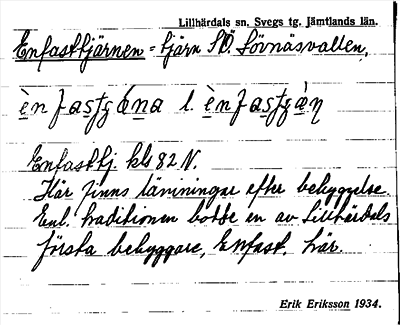 Lillhärdals sn. Svegs tg. Jämtlands län.
Enfasttjärnen = tjärn SÖ. Lövnäsvallen.
l.
Enfasttj. kbl 82 N.
Här finns lämningar efter bebyggelse.
Enl. traditionen bodde en av Lillhärdals
första bebyggare, Enfast, här.
Erik Eriksson 1934.